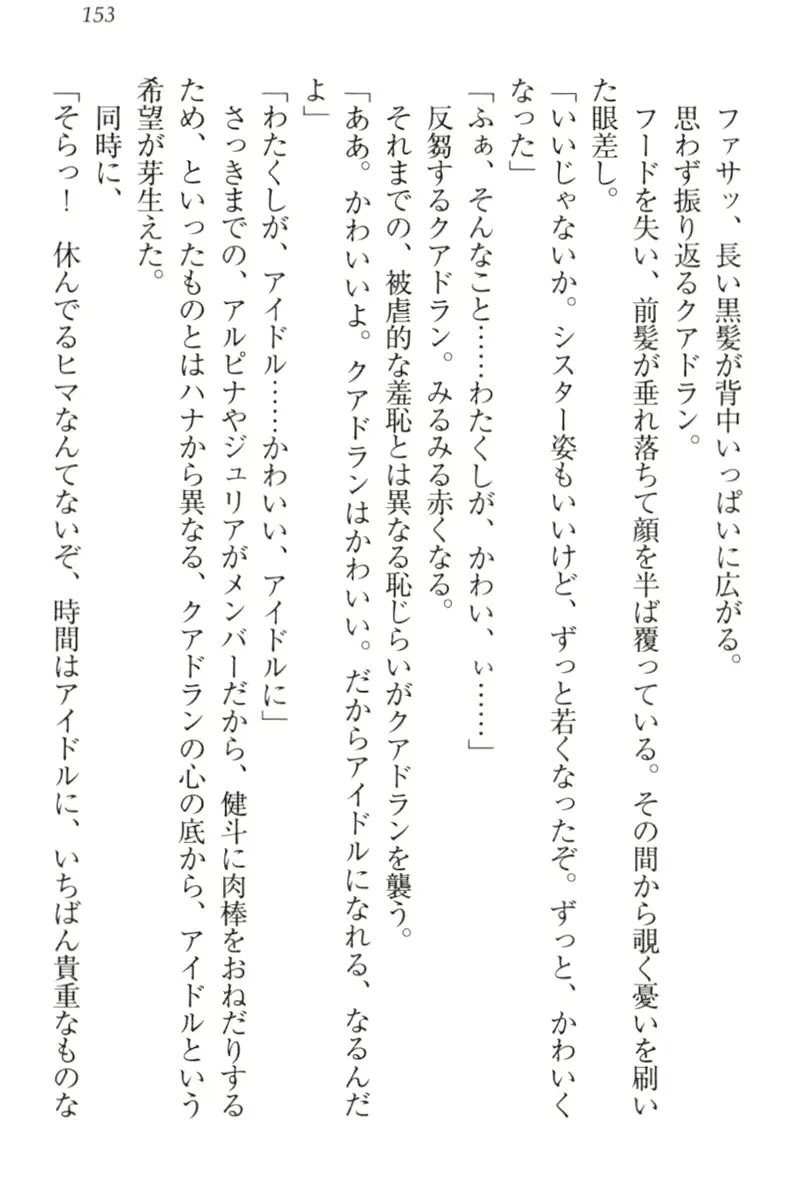 153
ファサッ、長い黒髪が背中いっぱいに広がる。
思わず振り返るクアドラン。
フードを失い、前髪が垂れ落ちて顔を半ば覆っている。その間から覗く憂いを刷い
た眼差し。
「いいじゃないか。シスター姿もいいけど、ずっと若くなったぞ。ずっと、かわいく
なった」
「ふぁ、そんなこと……わたくしが、かわい、ぃ……」
反芻するクアドラン。みるみる赤くなる。
それまでの、被虐的な羞恥とは異なる恥じらいがクアドランを襲う。
「ああ。かわいいよ。クアドランはかわいい。だからアイドルになれる、なるんだ
よ」
「わたくしが、アイドル……かわいい、アイドルに」
さっきまでの、アルピナやジュリアがメンバーだから、健斗に肉棒をおねだりする
ため、といったものとはハナから異なる、クアドランの心の底から、アイドルという
希望が芽生えた。
同時に、
「そらっ！　休んでるヒマなんてないぞ、時間はアイドルに、いちばん貴重なものな